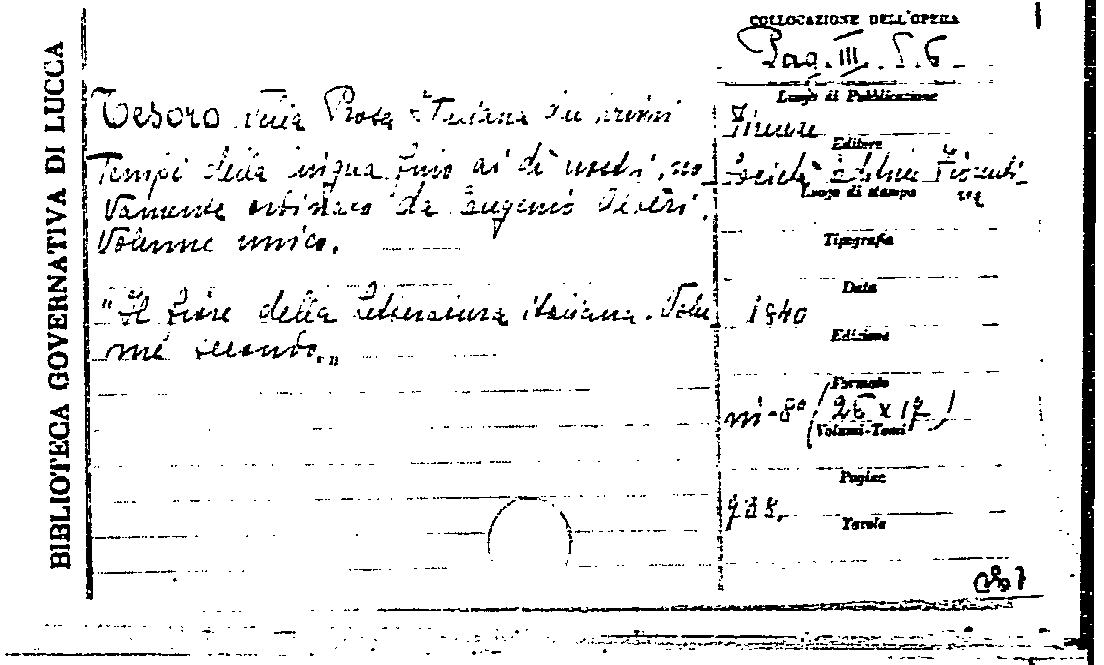 BIBLIOTECA GOVERNATIVA DI LUCCA
COLLOCAZIONE DELL'OPERA
Pag. III. 5. 6
Tesoro della Prosa Italiana dai primi
Tempi della lingua fino ai dì nostri, no
vamente ordinato da Eugenio
Volume unico.
"Il fiore della letteratura italiana. Volu
me secondo."
Luogo di Pubblicazione
Firenze
Editore
Società Editrice Fiorenti
na
Luogo di stampa
Tipografia
Data
1940
Edizione
Formato
in-8° (25 x 17)
Volumi-Tomi
Pagine
Tavole